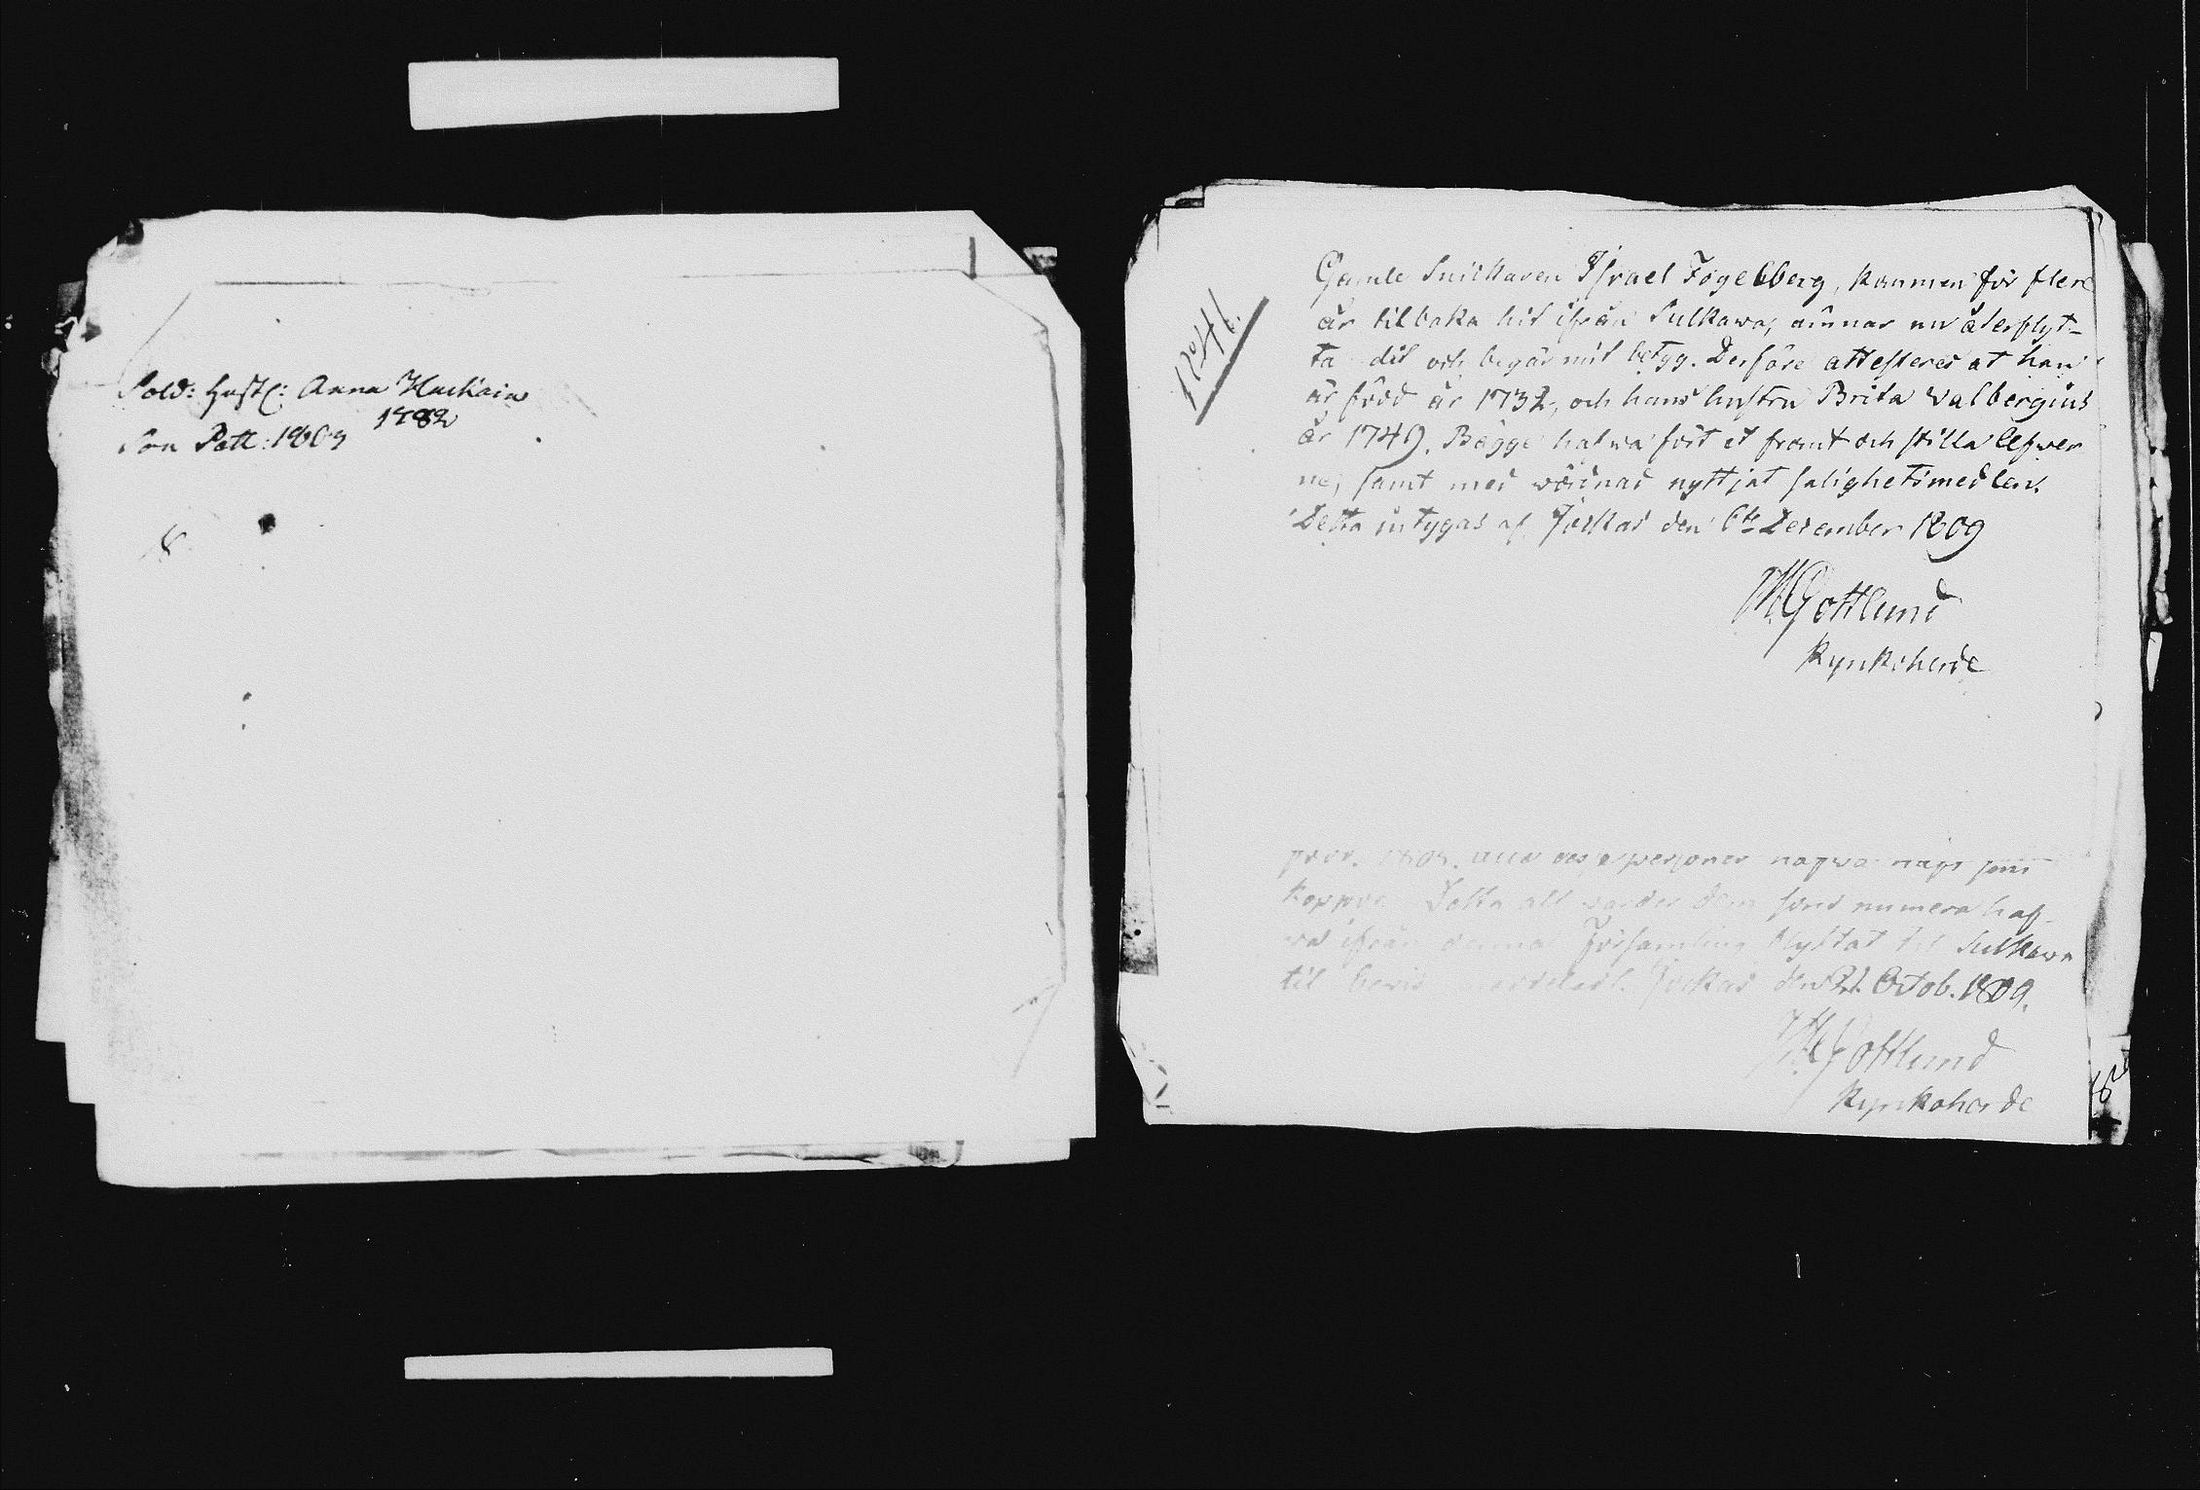 Sold: Hust: Anna Hackain
1782
Son Pett: 1809
N:o 41.
Gamle Snickaren Israel Fogelberg, kommen för flere
år tilbaka hit ifrån Sulkawa, ämnar nu återflyt-
ta dit och begär mit betyg. Derföre attesteres at han
är född år 1732, och hans hustru Brita Valbergius
år 1749. Bägge hafwa fört et fromt och stilla lefwer
ne, samt med wördnad nyttjat salighetsmedlen.
Detta intygas af Jockas den 6te December 1809
M. Gottlund
Kyrkoherde
personer hafwa
koppor Detta alt warder dem som numera haf-
wa ifrån denna Församling flyttat til Sulkawa
til bewis Jockas den 21 Octob. 1809.
M. Gottlund
Kyrkoherde